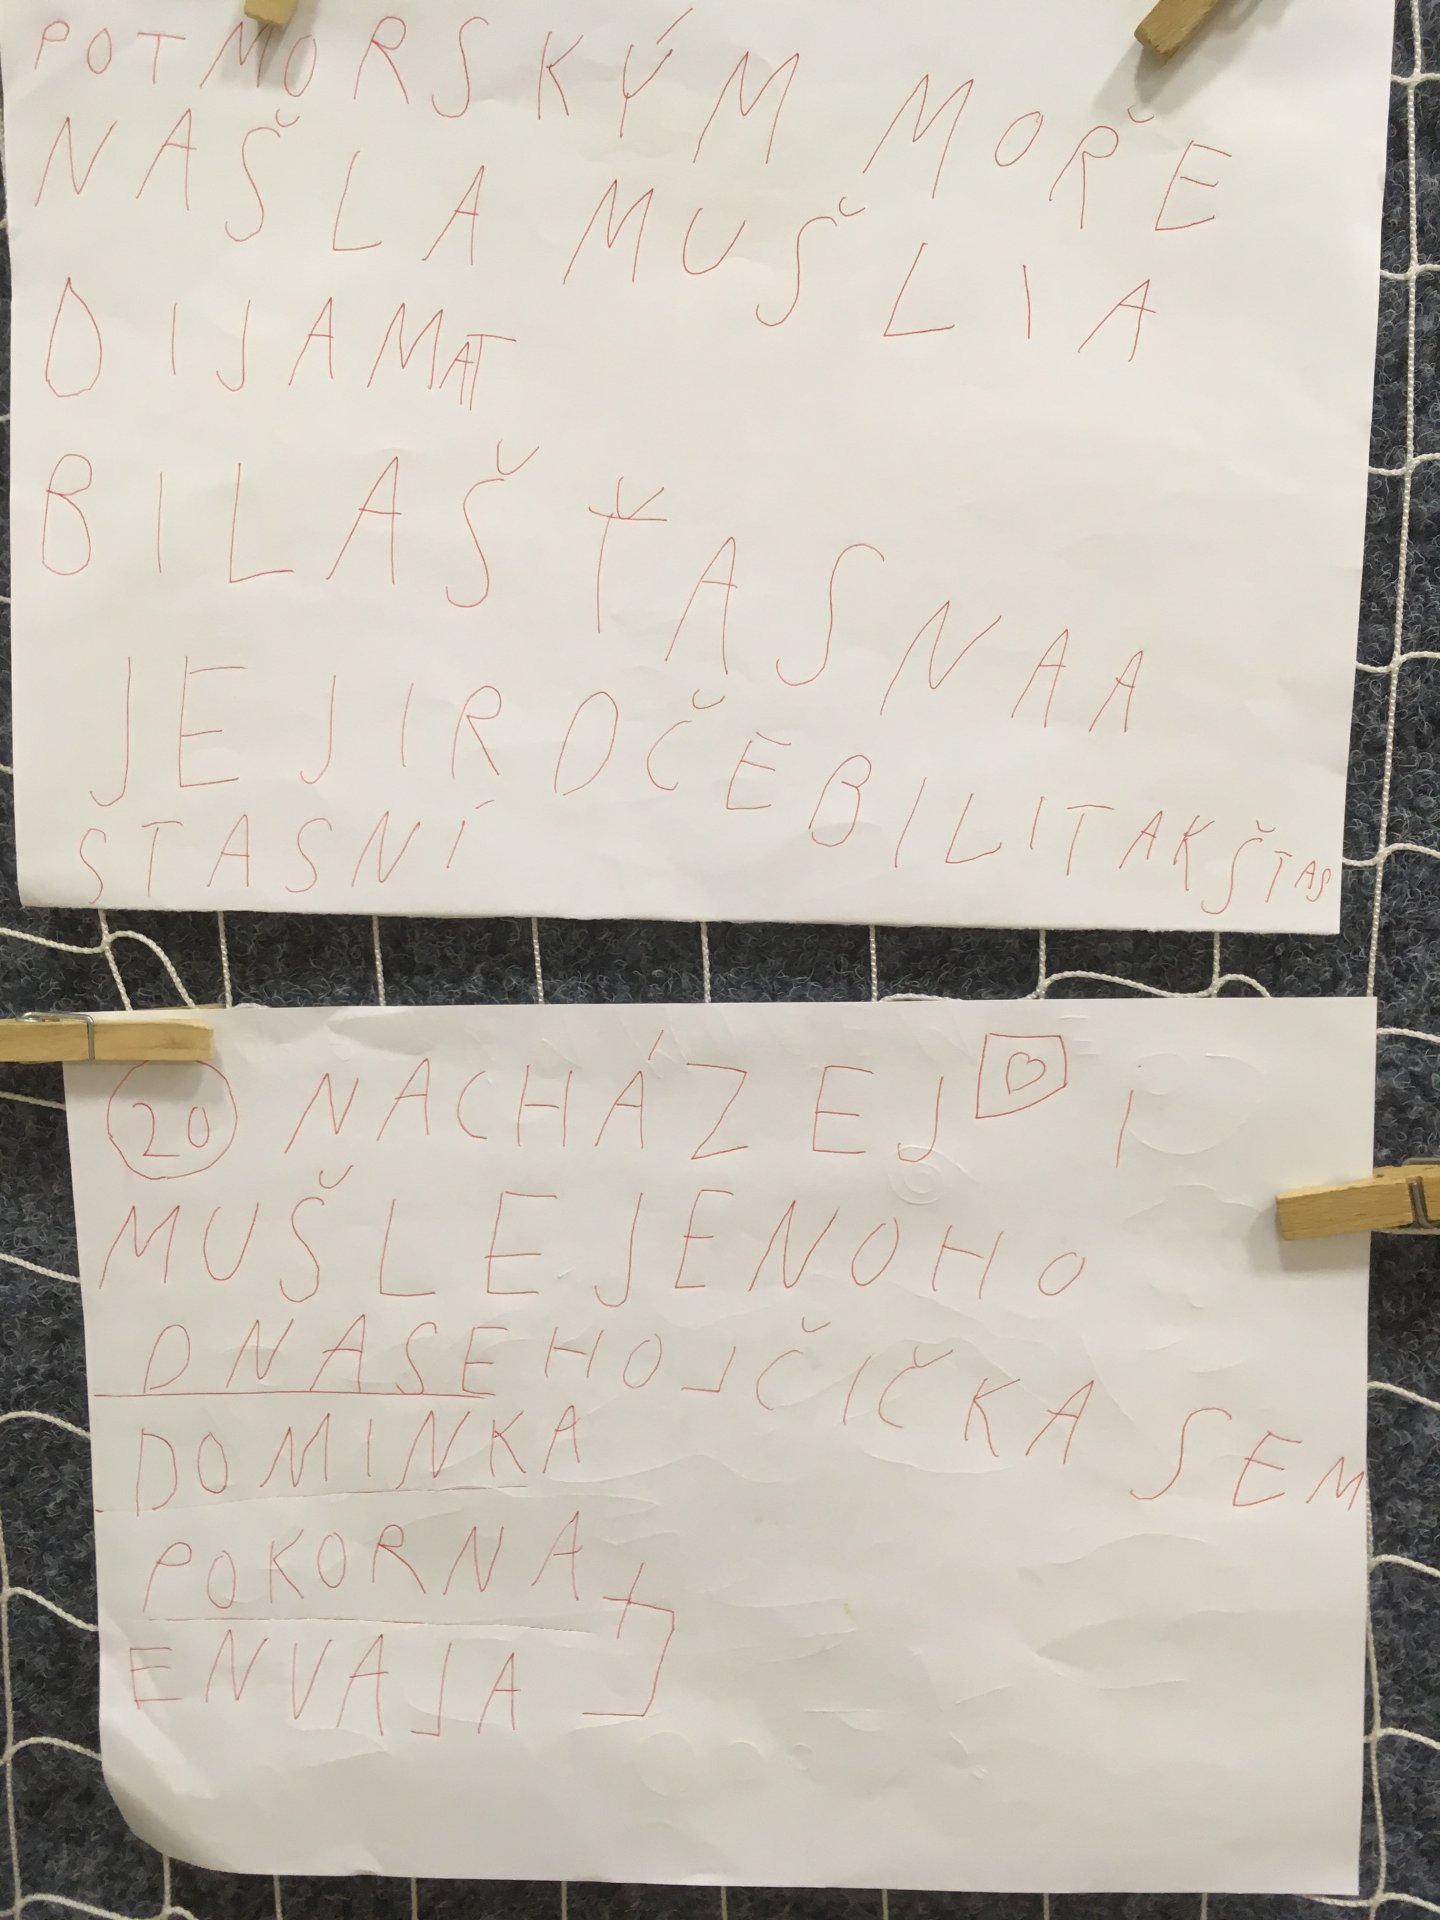 POTMORSKÝM MOŘE
NAŠLA MUŠLIA
DIJAMAT
BILAŠŤASNAA
JEJIRDČEBILITAKŠTAS
STASNÍ
20 NACHÁZEJ I
MUŠLEJENOHO
DNASEHOJČIČKA SEM
DOMINKA
POKORNA
ENVAJA